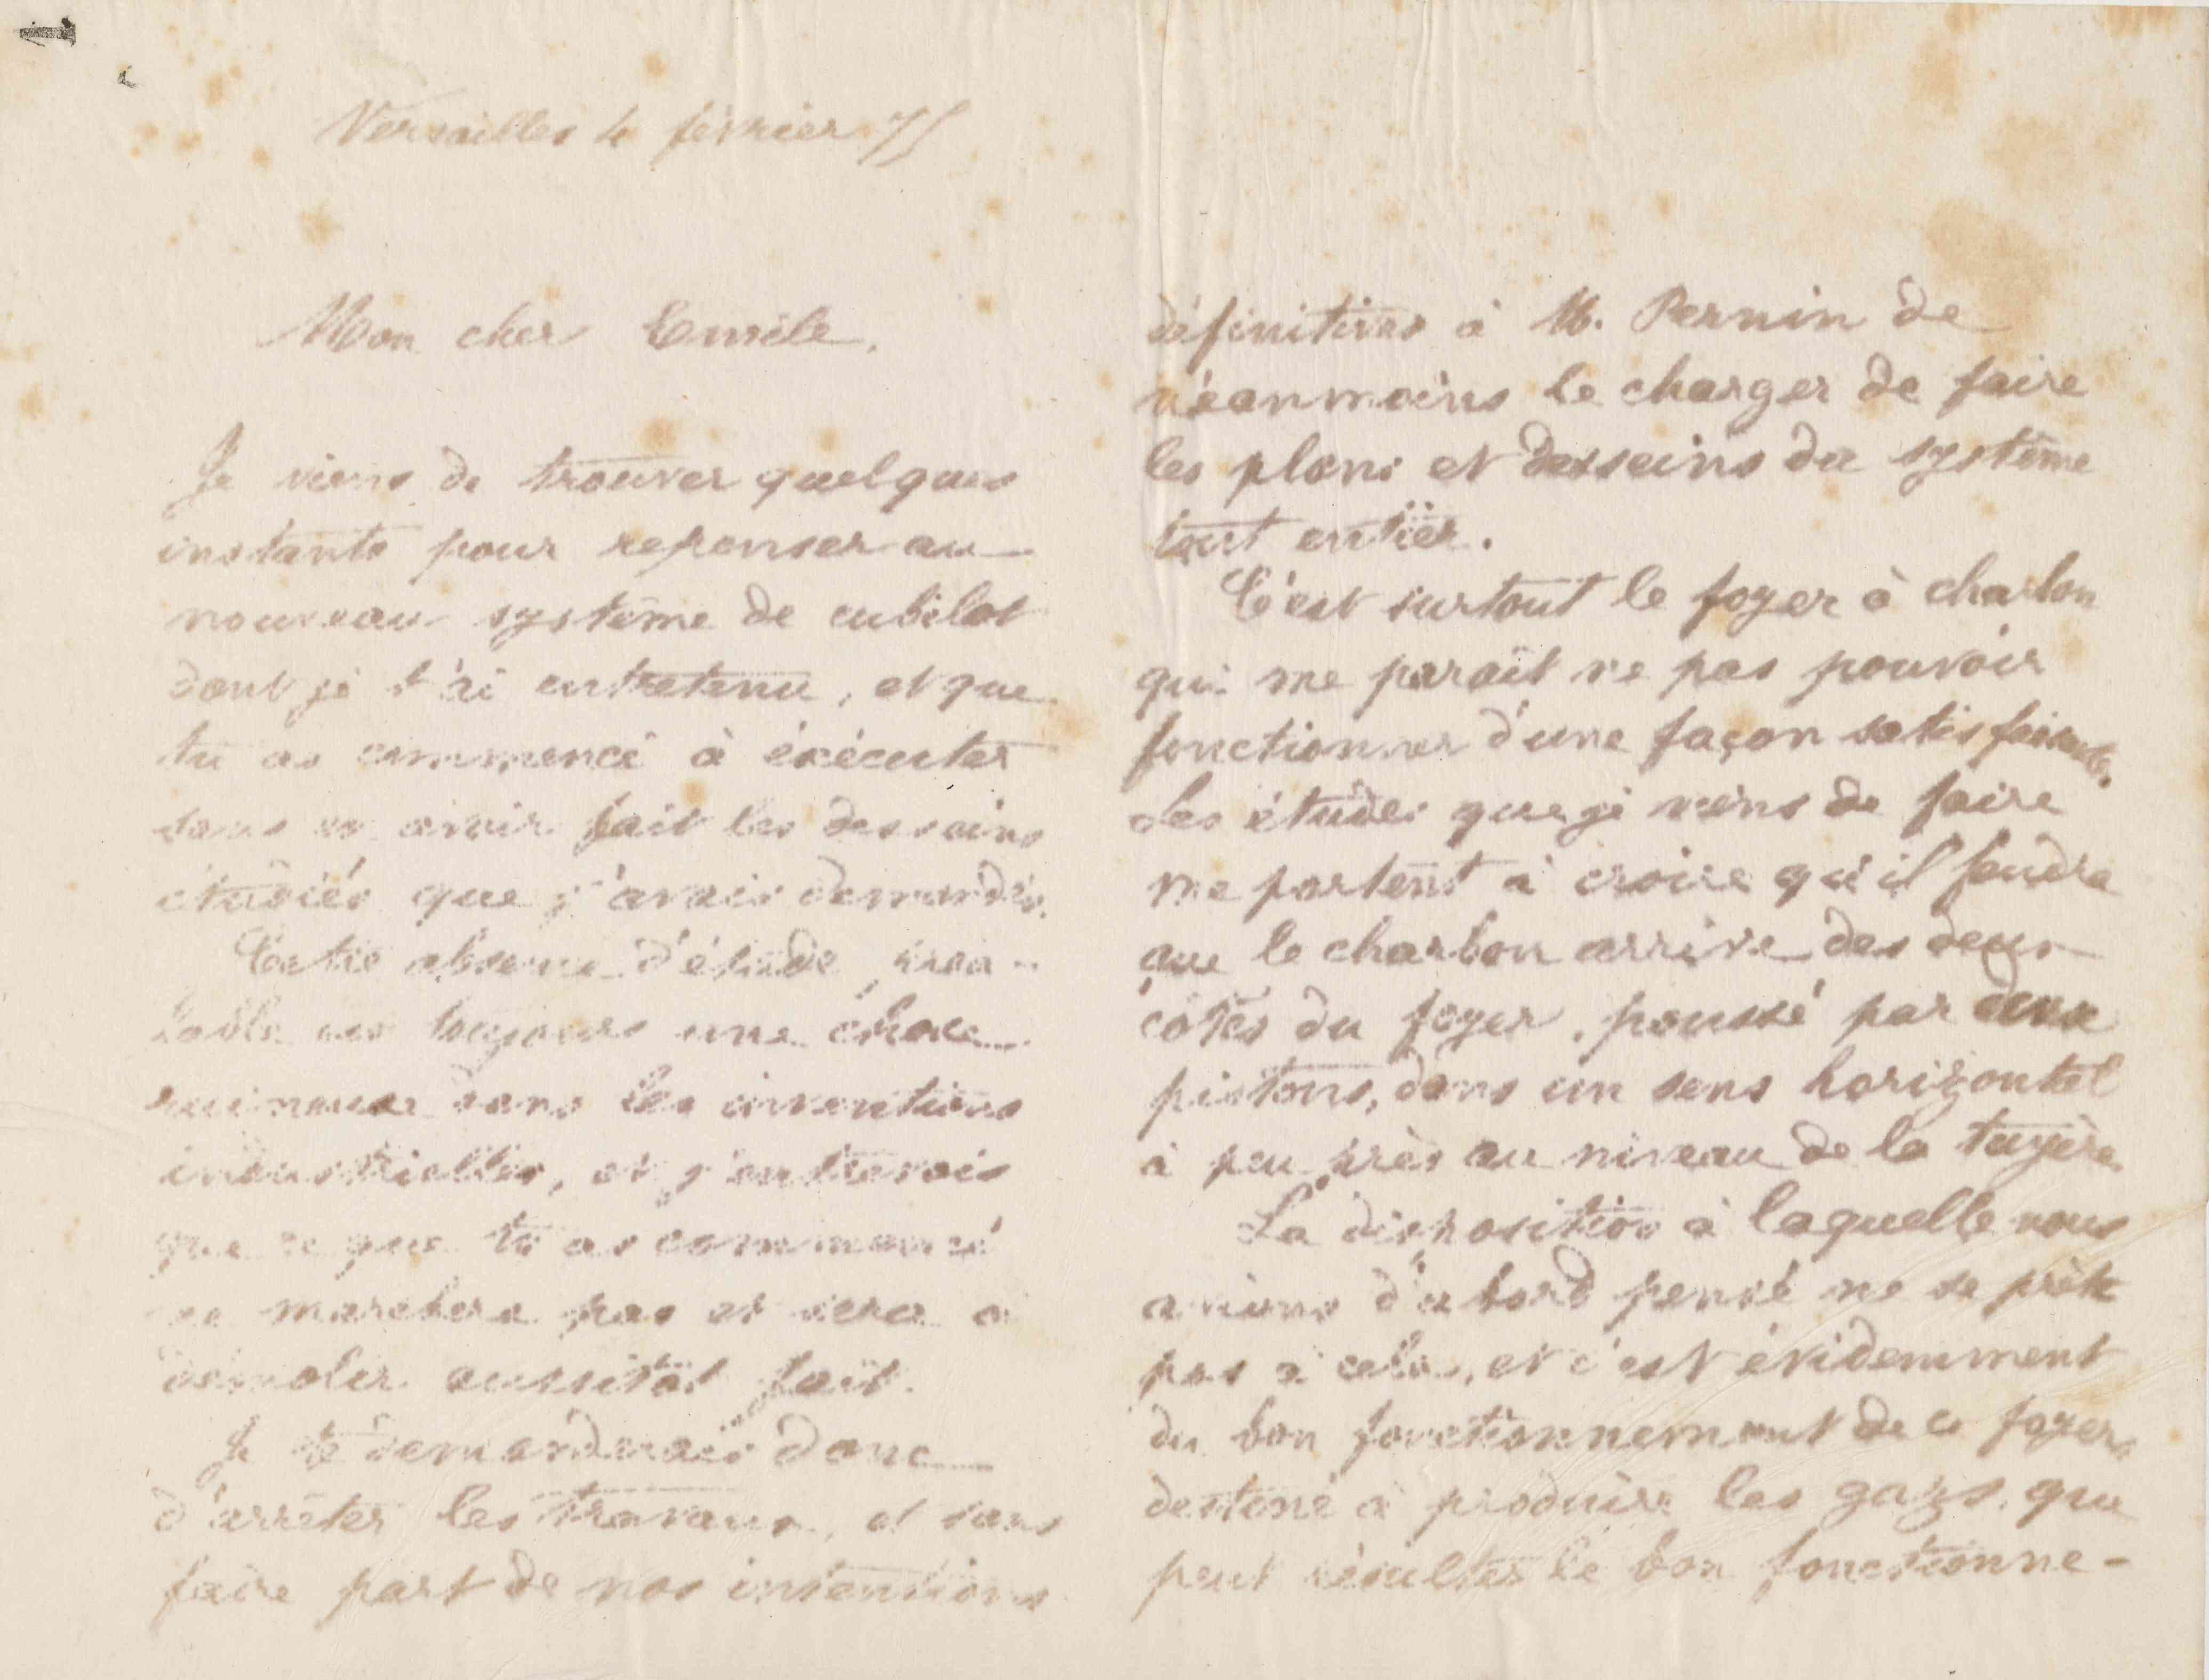 1
Versailles 4 février 75
Mon cher Emile,
Je viens de trouver quelques
instants pour repenser au
nouveau système de cubilot
dont je t'ai entretenu, et que
tu as commencé à éxécuter
sans en avoir fait les desseins
étudiés que j'avais demandés.
Cette absence d'étude préa-
lable est toujours une chose
ruineuse dans les inventions
industrielles, et j'entrevois
que ce que tu as commencé
ne marchera pas et sera à
démolir aussitôt fait.
Je te demanderais donc
d'arrêter les travaux, et sans
faire part de nos intentions
définitives à M. Pernin de
néanmoins le charger de faire
les plans et desseins du système
tout entier.
C'est surtout le foyer à charbon
qui me paraît ne pas pouvoir
fonctionner d'une façon satisfaisante.
Les études que je viens de faire
me portent à croire qu'il faudra
que le charbon arrive des deux
côtés du foyer, poussé par deux
pistons, dans un sens horizontal
à peu près au niveau de la tuyère.
La disposition à laquelle nous
avions d'abord pensé ne se prête
pas à cela, et c'est évidemment
du bon fonctionnement de ce foyer,
destiné à produire les gazs, que
peut résulter le bon fonctionne-